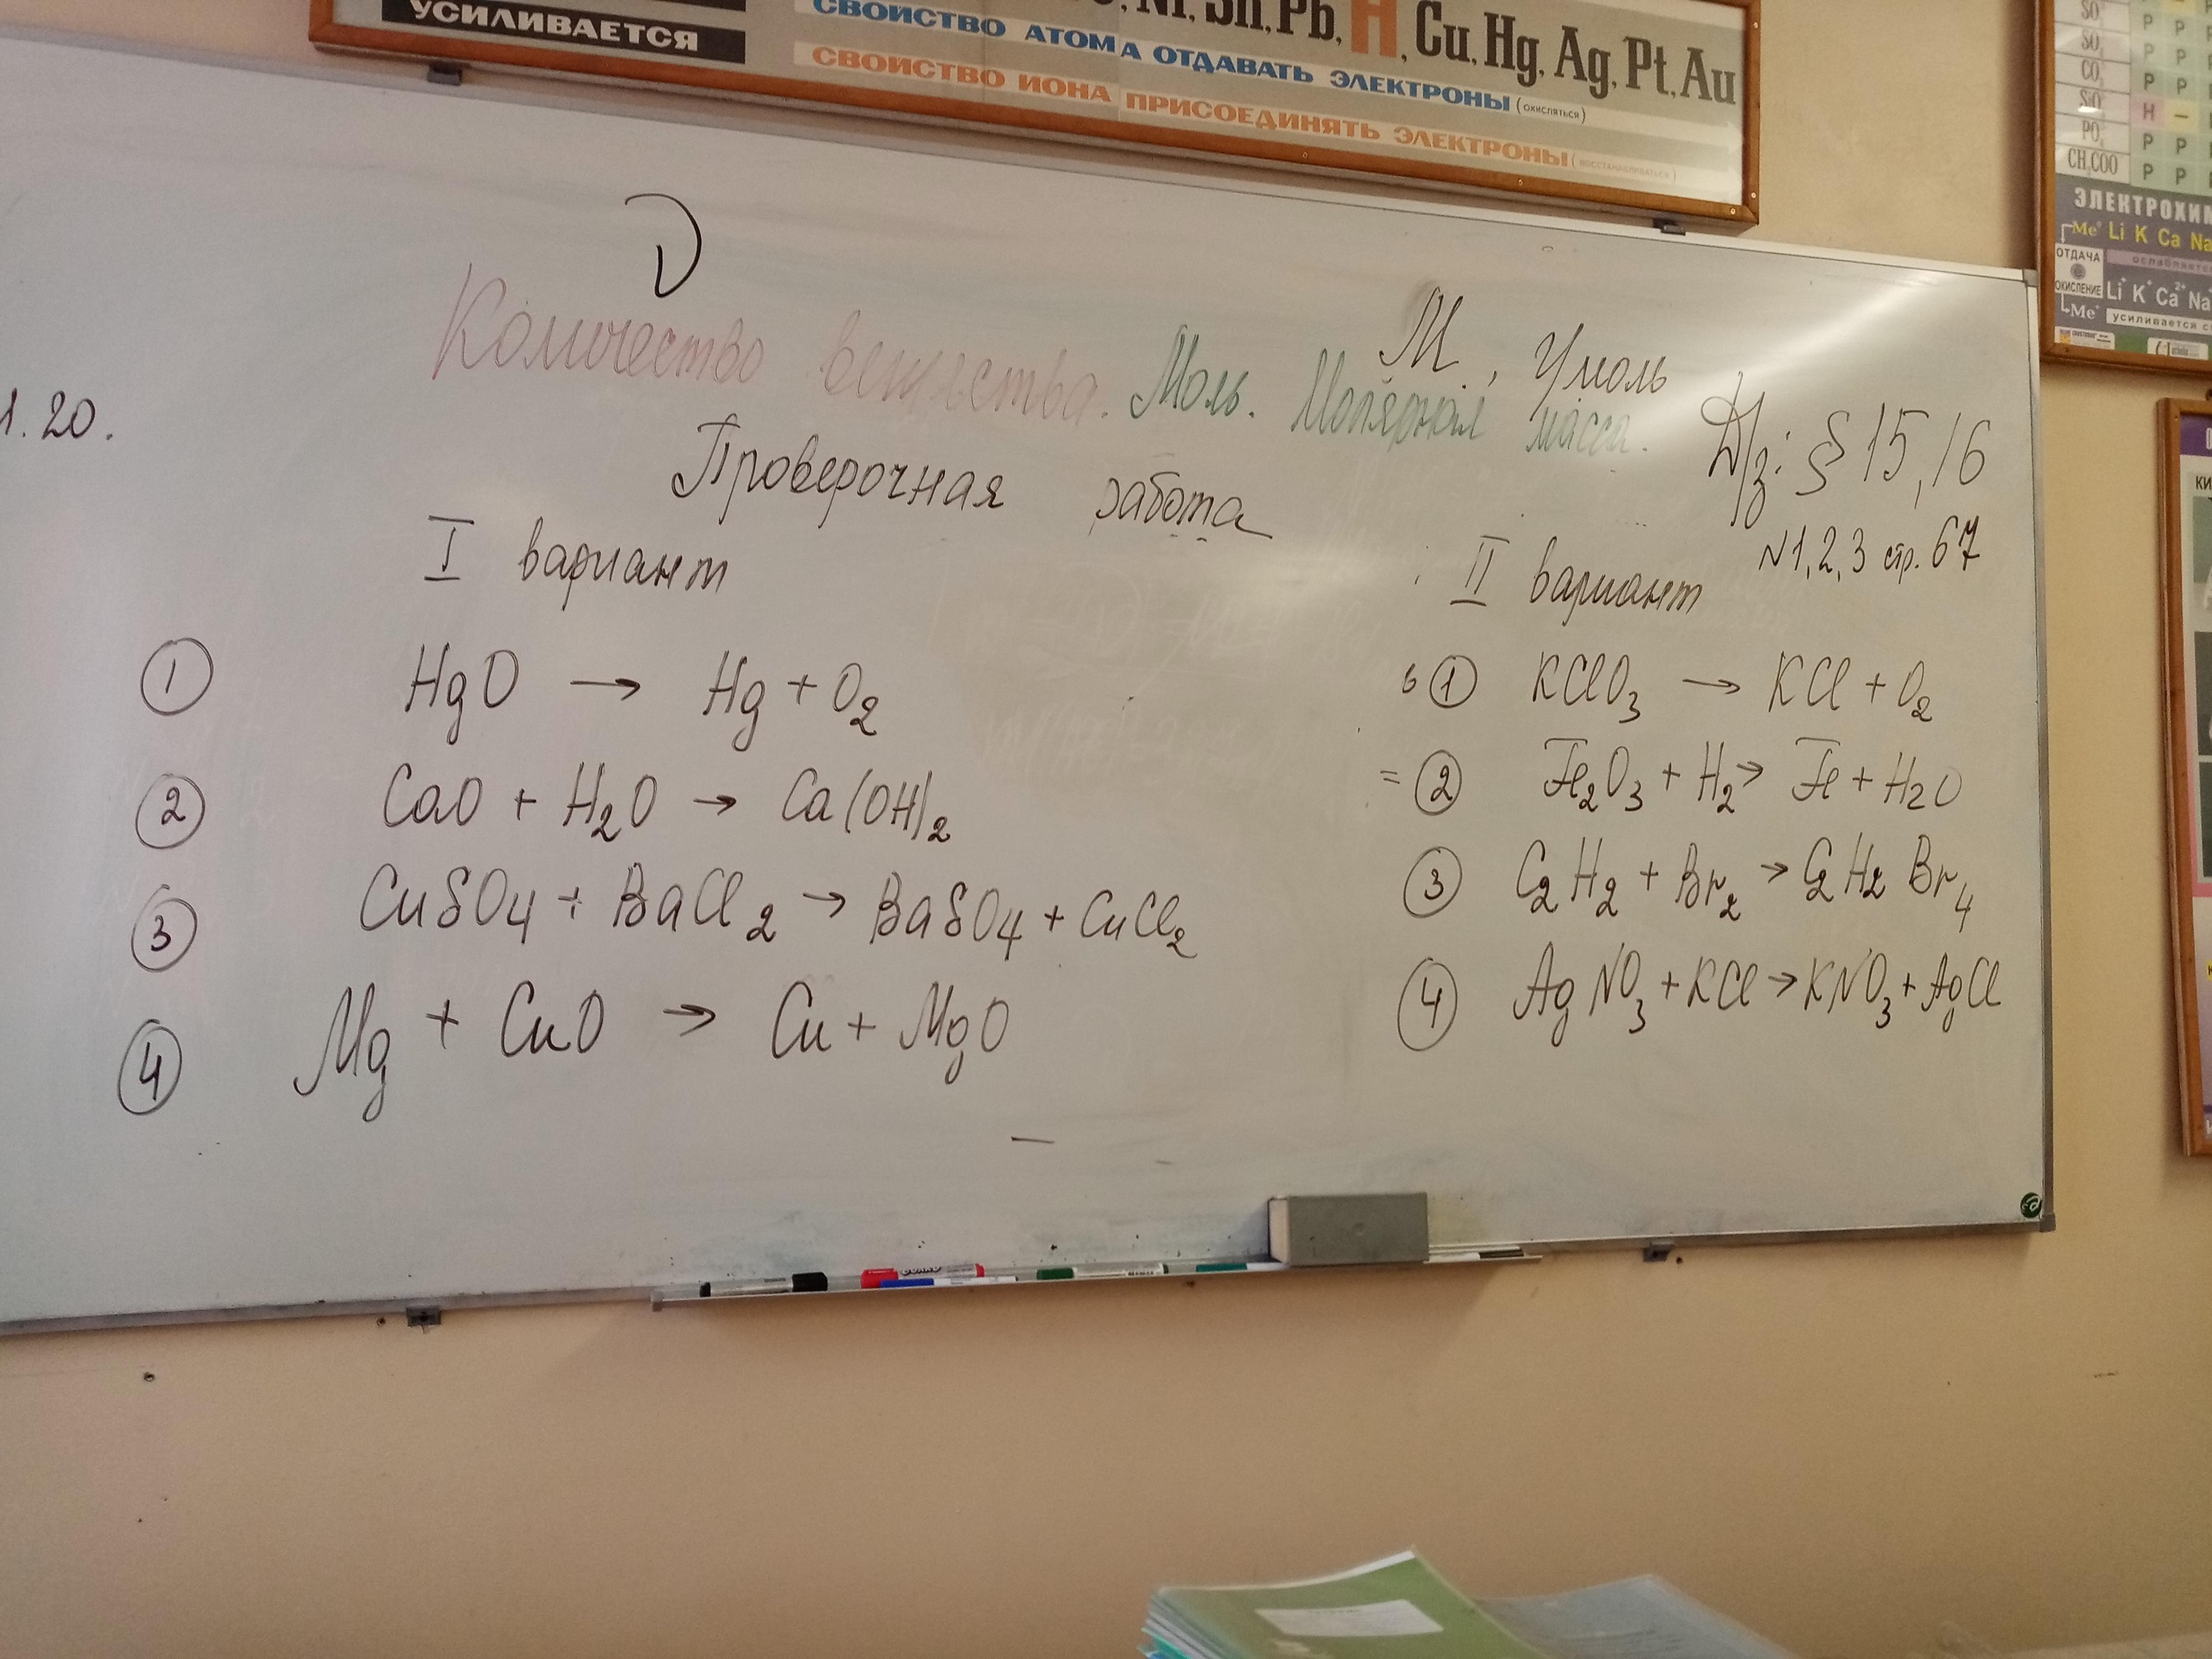 УСИЛИВАЕТСЯ
Ni, Sn, Pb, H, Cu, Hg, Ag, Pt, Au
СВОЙСТВО АТОМА ОТДАВАТЬ ЭЛЕКТРОНЫ (ОКИСЛЯТЬСЯ)
СВОЙСТВО ИОНА ПРИСОЕДИНЯТЬ ЭЛЕКТРОНЫ (ВОССТАНАВЛИВАТЬСЯ)
SO
SO₄
CO₃
SiO
PO₄
CH₃COO
Р Р
Р Р
Р Р
Н –
Р Р
Р Р
ЭЛЕКТРОХИМ
Me° Li K Ca Na
ОТДАЧА
ослабляетс
ОКИСЛЕНИЕ
Li⁺ K⁺ Ca²⁺ Na
Me⁺
усиливается с
ν
М, г/моль
Количество вещества. Моль. Молярная масса.
1.20.
Д/з: § 15, 16
N 1, 2, 3 стр. 67
Проверочная работа
I вариант
① HgO → Hg + O₂
② CaO + H₂O → Ca(OH)₂
③ CuSO₄ + BaCl₂ → BaSO₄ + CuCl₂
④ Mg + CuO → Cu + MgO
II вариант
① KClO₃ → KCl + O₂
② Fe₂O₃ + H₂ → Fe + H₂O
③ C₂H₂ + Br₂ → C₂H₂Br₄
④ AgNO₃ + KCl → KNO₃ + AgCl